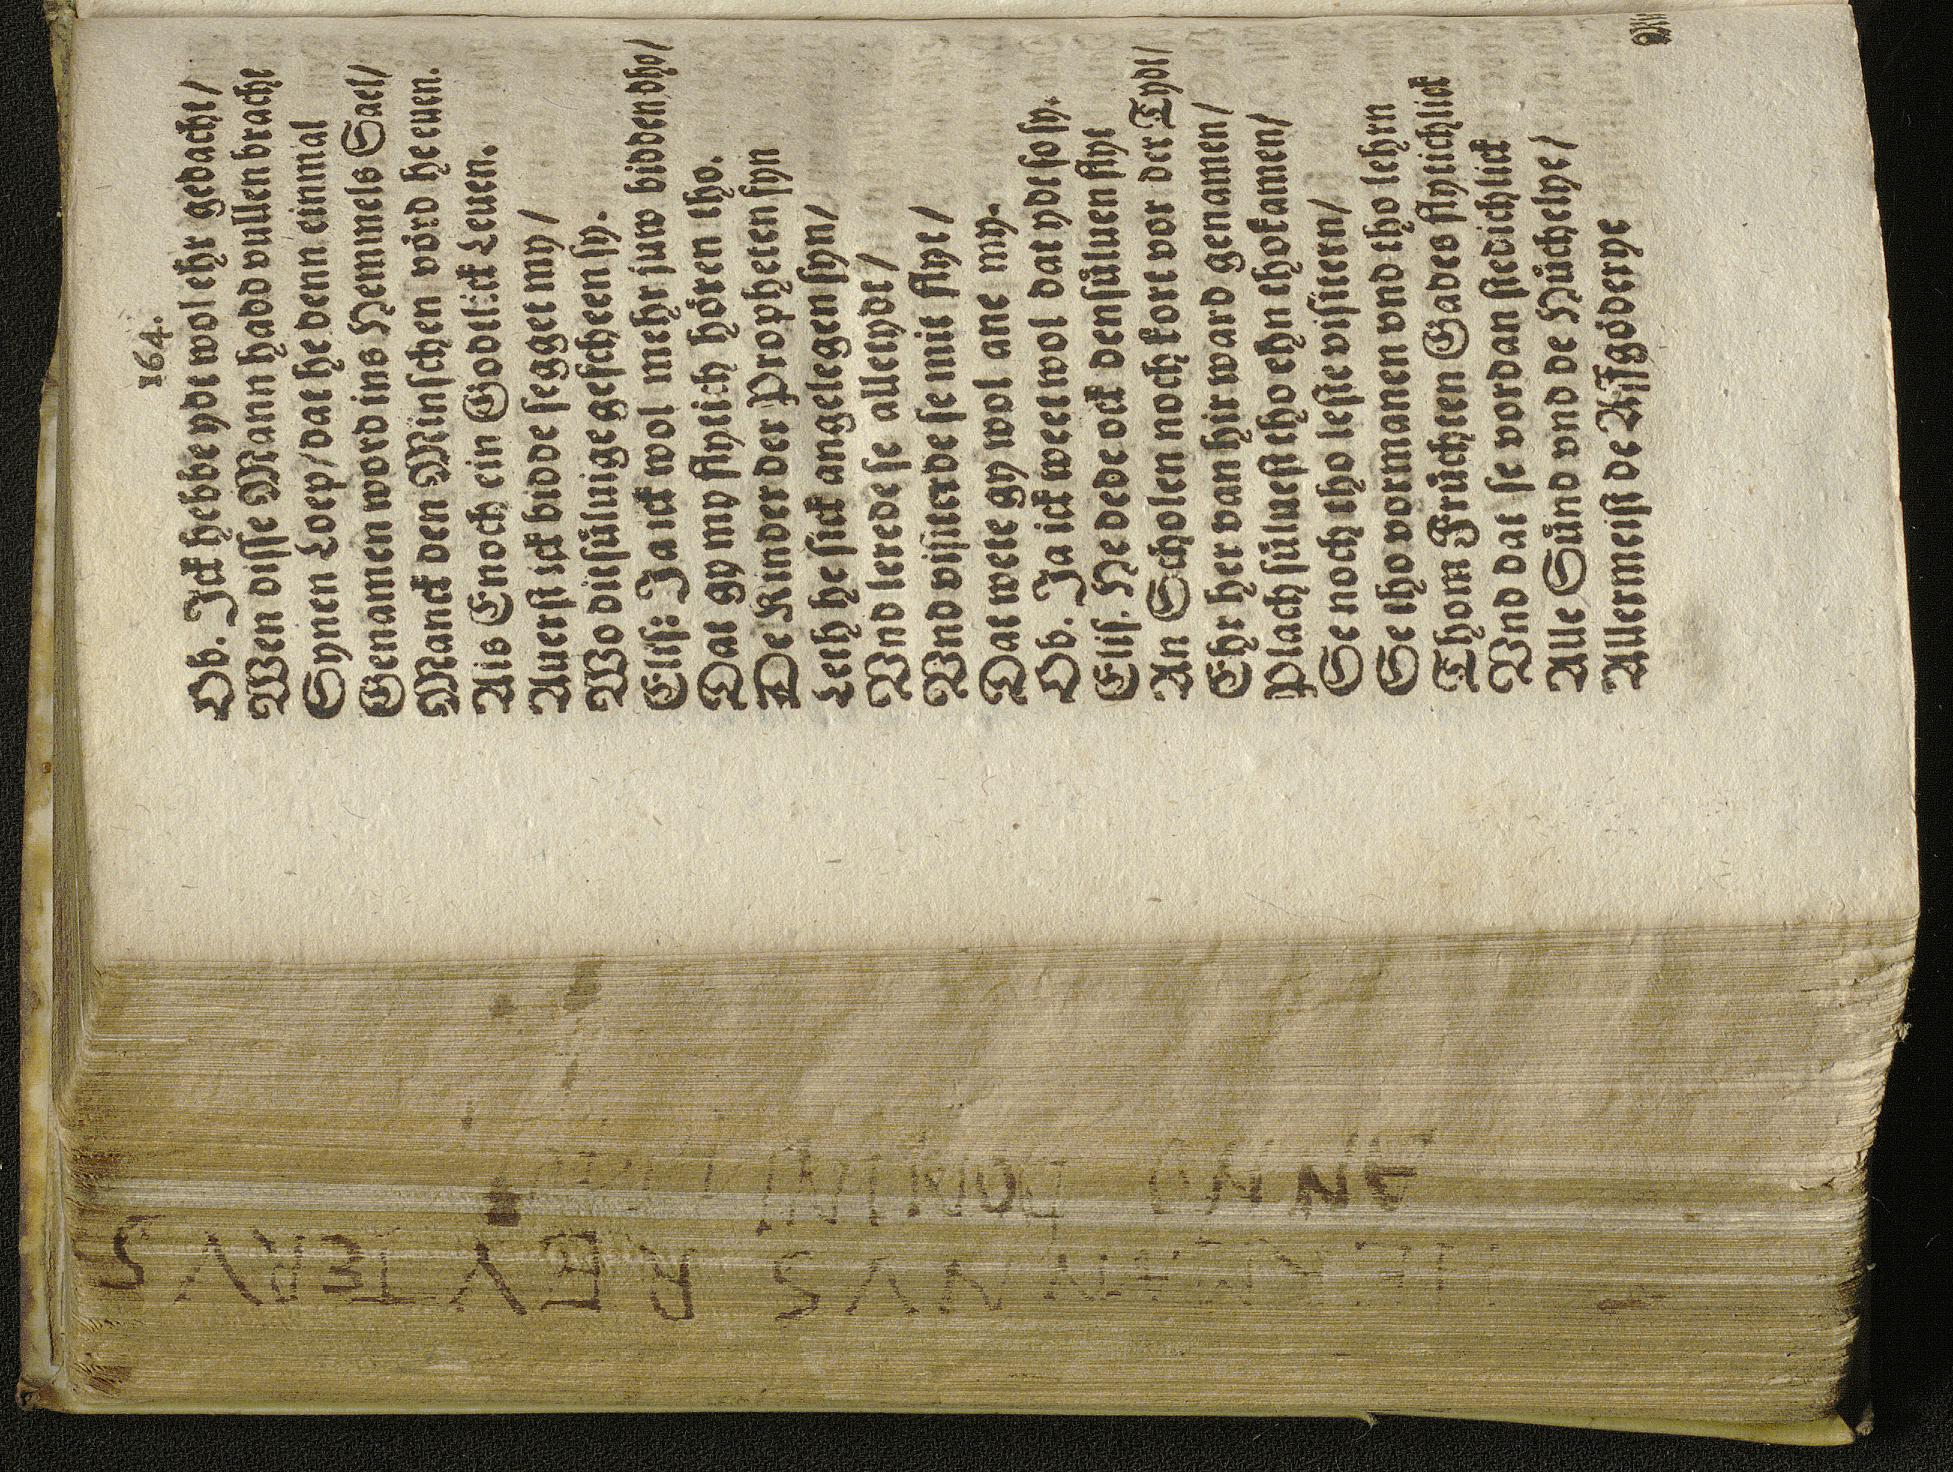 164.
Ob. Ick hebbe ydt wol ehr gedacht/
Wen disse Mann hadd vullenbracht
Synen Loep/dat he denn einmal
Genamen word ins Hemmels Sael/
Manck den Minschen vörd he euen.
Als Enoch ein Godtlick Leuen.
Auerst ick bidde segget my/
Wo diesüluige gescheen sy.
Elis: Ja ick wol mehr juw bidden dho/
Dat gy my flytich hören tho.
De Kinder der Propheten syn
Leth he sick angelegen syn/
Vnd lerede se alletydt/
Vnd visiterde se mit flyt/
Dat wete gy wol ane my.
Ob. Ja ick weet wol dat ydt so sy.
Elis. He dede ock densüluen flyt
An Scholen noch kort vor der Tydt/
Ehr her van hir ward genamen/
Plach süluest tho ehn thokamen/
Se noch tho leste visitern/
Se tho vormanen vnd tho lehrn
Thom Früchten Gades flytichlick
Vnd dat se vordan stedichlick
Alle Sünd vnd de Hüchelye/
Allermeist de Affgöderye
ANNO DOMINI
HERMANNVS REVTERVS